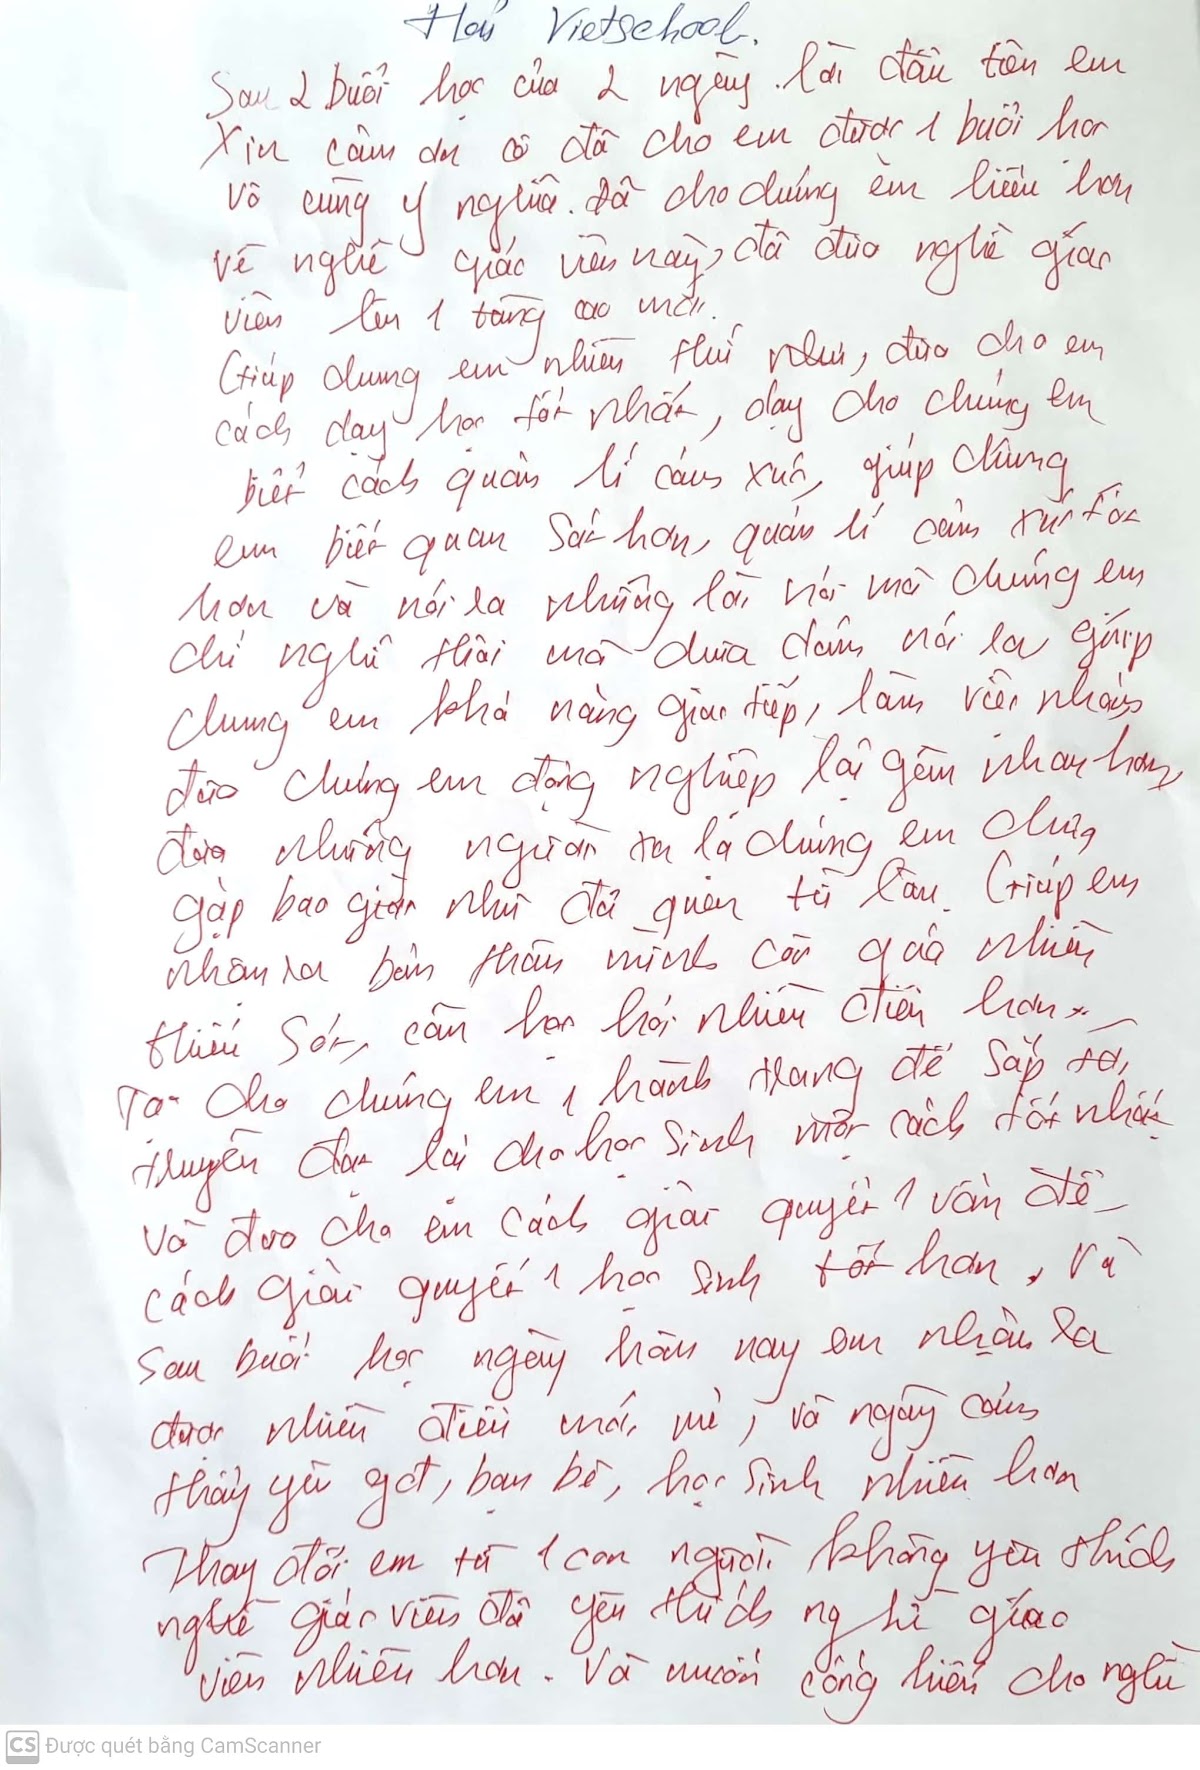 Hoá Vietschool.
Sau 2 buổi học của 2 ngày. lời đầu tiên em
Xin cảm ơn cô đã cho em được 1 buổi học
vô cùng ý nghĩa. Đã cho chúng em hiểu hơn
về nghề giáo viên này, đã đưa nghề giáo
viên lên 1 tầng cao mới.
Giúp chúng em nhiều thứ như, đưa cho em
cách dạy học tốt nhất, dạy cho chúng em
biết cách quản lí cảm xúc, giúp chúng
em biết quan sát hơn, quản lí cảm xúc tốt
hơn và nói ra những lời nói mà chúng em
chỉ nghĩ thôi mà chưa dám nói ra giúp
chúng em khả năng giao tiếp, làm việc nhóm
đưa chúng em đồng nghiệp lại gần nhau hơn,
đưa những người xa lạ chúng em chưa
gặp bao giờ như đã quen từ lâu. Giúp em
nhận ra bản thân mình còn quá nhiều
thiếu sót, cần học hỏi nhiều điều hơn.
Tạo cho chúng em 1 hành trang để sắp tới,
truyền đạt lại cho học sinh một cách tốt nhất
và đưa cho em cách giải quyết 1 vấn đề
cách giải quyết 1 học sinh tốt hơn, Và
sau buổi học ngày hôm nay em nhận ra
được nhiều điều mới mẻ, và ngày càng
thấy yêu gđ, bạn bè, học sinh nhiều hơn
Thay đổi em từ 1 con người không yêu thích
nghề giáo viên đã yêu thích nghề giáo
viên nhiều hơn. Và muốn cống hiến cho nghề
CS Được quét bằng CamScanner